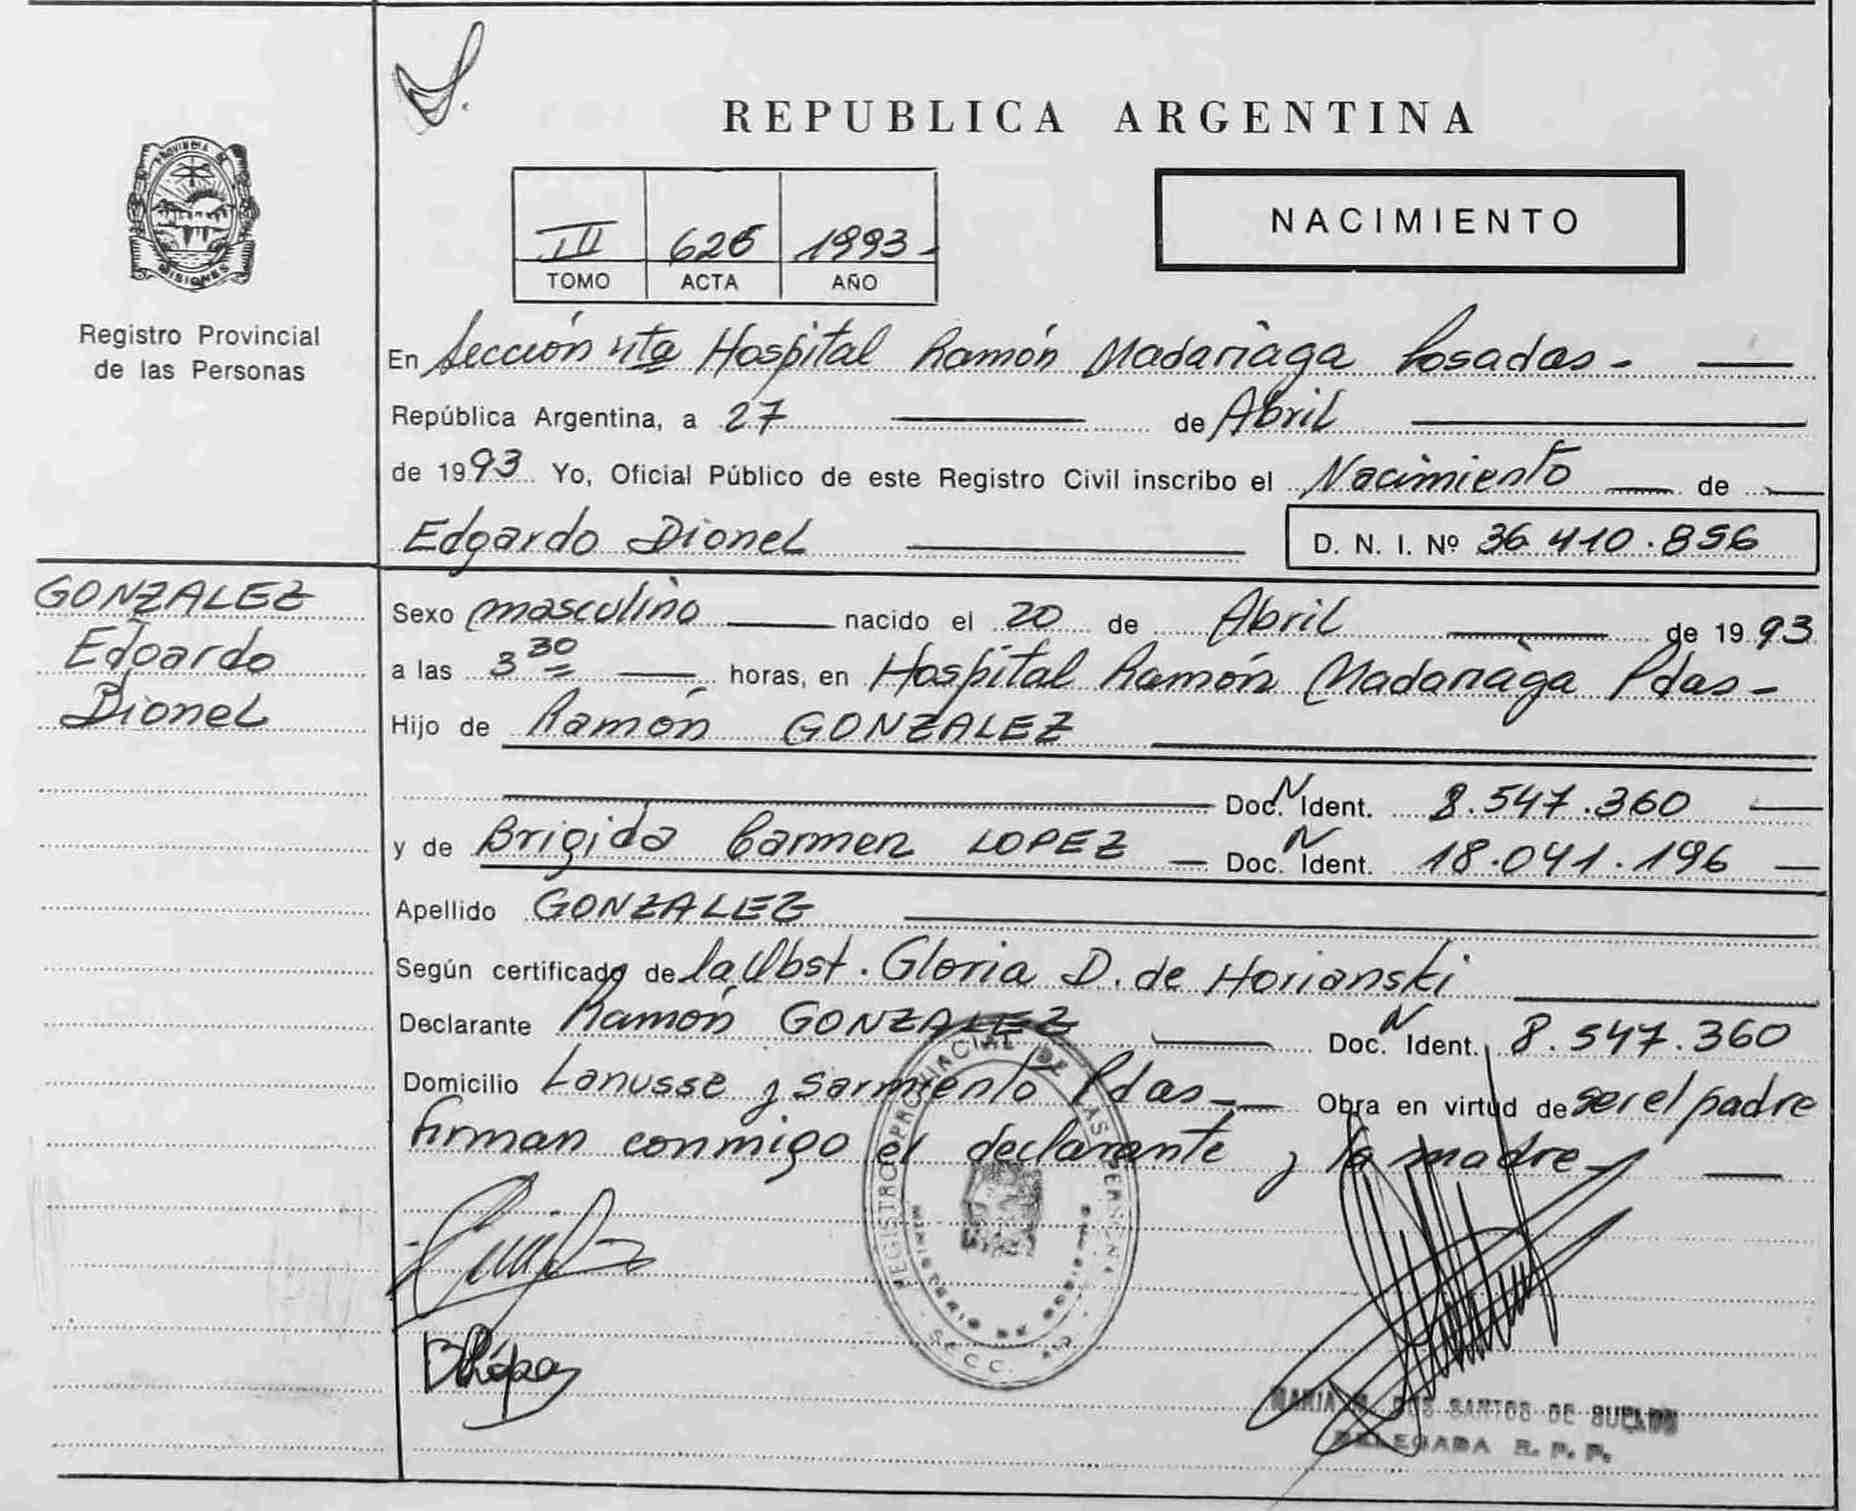 REPUBLICA ARGENTINA
PROVINCIA DE
MISIONES
Registro Provincial
de las Personas
NACIMIENTO
III 626 1993-
TOMO ACTA AÑO
En Sección 4ta Hospital Ramón Madariaga Posadas -
República Argentina, a 27 de Abril
de 1993 Yo, Oficial Público de este Registro Civil inscribo el Nacimiento de
Edgardo Dionel D. N. I. Nº 36.410.856
GONZALEZ
Edgardo
Dionel
Sexo masculino nacido el 20 de Abril de 1993
a las 3 30 horas, en Hospital Ramón Madariaga Pdas -
Hijo de Ramón GONZALEZ
Doc. N Ident. 8.547.360
y de Brigida Carmen LOPEZ - Doc. N Ident. 18.041.196
Apellido GONZALEZ
Según certificado de la Obst. Gloria D. de Horianski
Declarante Ramón GONZALEZ Doc. N Ident. 8.547.360
Domicilio Lanusse y Sarmiento Pdas - Obra en virtud de ser el padre
firman conmigo el declarante y la madre -
REGISTRO PROVINCIAL DE LAS PERSONAS
MINISTERIO DE GOBIERNO
SECC. 4a
BLópez
MARIA DOS SANTOS DE
DELEGADA R. P. P.